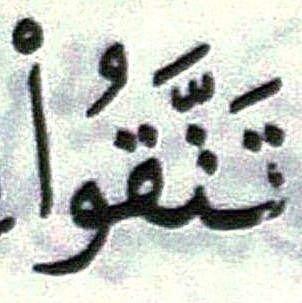 تَنَّقُوا۟